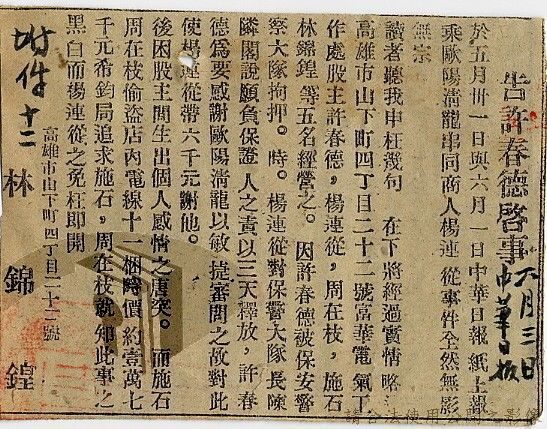 告許春德啓事
六月三日
中華日报
於五月卅一日與六月一日中華日報紙上報
乘歐陽清龍串同商人楊連從事件全然無影
無宗
讀者聽我申枉幾句 在下將經過實情略
高雄市山下町四丁目二十二號富華電氣工
作處股主許春德，楊連從，周在枝，施石
林錦鍠 等五名經營之。因許春德被保安警
察大隊拘押。時。楊連從對保警大隊長陳
麟閣說願負保證人之責以三天釋放，許春
德爲要感謝歐陽清龍以敏捷審問之故對此
使楊連從帶六千元謝他。
後因股主間生出個人感情之唐突。而施石
周在枝偷盜店內電線十一梱降價約壹萬七
千元希鈞局追求施石，周在枝就知此事之
黑白而楊連從之免枉即開
高雄市山下町四丁目二十二號
林錦鍠
附件十二
請合法使用公開之影像